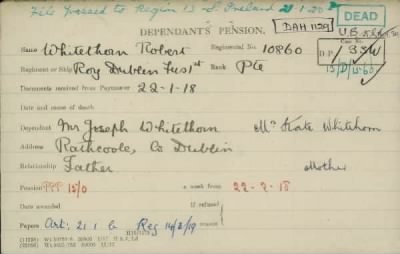 File passed to Region 13 S. Ireland 21-1-20
DEPENDANT'S PENSION.
DAH 1129
DEAD
Name Whitethorn Robert Regimental No. 10860
Regiment or Ship Roy Dublin Fus 1st Rank Pte
Documents received from Paymaster 22-1-18
Date and cause of death
Dependent Mr Joseph Whitethorn Mrs Kate Whitehorn
Address Rathcoole, Co Dublin
Relationship Father Mother
Pension PPP 15/0 a week from 22-7-18
Date awarded if refused,
Papers Art: 21 1 b Reg 14/2/19 reason